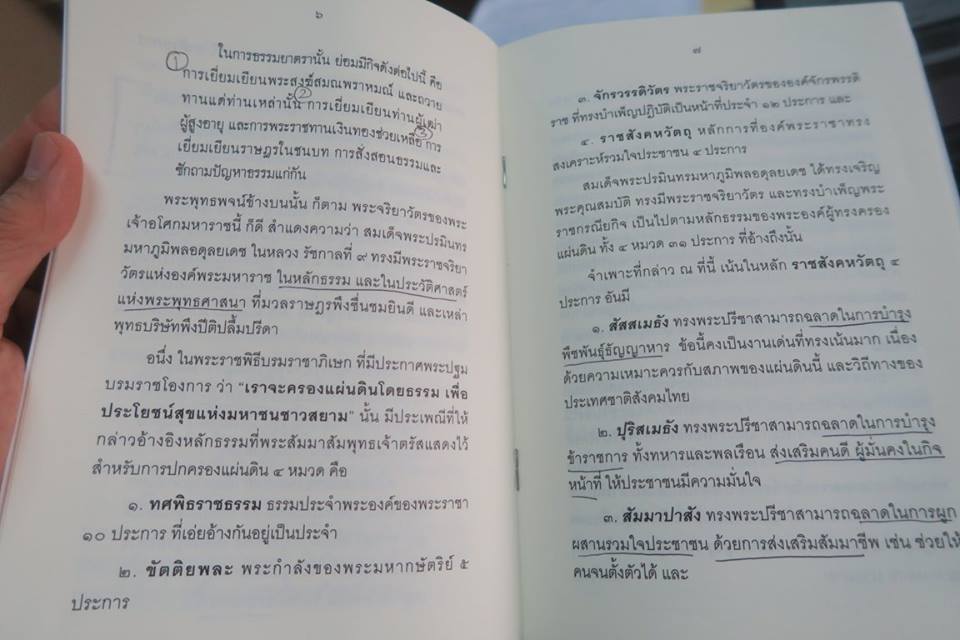 ๖
ในการธรรมยาตรานั้น ย่อมมีกิจดังต่อไปนี้ คือ
① การเยี่ยมเยียนพระสงฆ์สมณพราหมณ์ และถวาย
ทานแด่ท่านเหล่านั้น ② การเยี่ยมเยียนท่านผู้เฒ่า
ผู้สูงอายุ และการพระราชทานเงินทองช่วยเหลือ ③ การ
เยี่ยมเยียนราษฎรในชนบท การสั่งสอนธรรมและ
ซักถามปัญหาธรรมแก่กัน
พระพุทธพจน์ข้างบนนั้น ก็ตาม พระจริยาวัตรของพระ
เจ้าอโศกมหาราชนี้ ก็ดี สำแดงความว่า สมเด็จพระปรมินทร
มหาภูมิพลอดุลยเดช ในหลวง รัชกาลที่ ๙ ทรงมีพระราชจริยา
วัตรแห่งองค์พระมหาราช ในหลักธรรม และในประวัติศาสตร์
แห่งพระพุทธศาสนา ที่มวลราษฎรพึงชื่นชมยินดี และเหล่า
พุทธบริษัทพึงปีติปลื้มปรีดา
อนึ่ง ในพระราชพิธีบรมราชาภิเษก ที่มีประกาศพระปฐม
บรมราชโองการ ว่า “เราจะครองแผ่นดินโดยธรรม เพื่อ
ประโยชน์สุขแห่งมหาชนชาวสยาม” นั้น มีประเพณีที่ให้
กล่าวอ้างอิงหลักธรรมที่พระสัมมาสัมพุทธเจ้าตรัสแสดงไว้
สำหรับการปกครองแผ่นดิน ๔ หมวด คือ
๑. ทศพิธราชธรรม ธรรมประจำพระองค์ของพระราชา
๑๐ ประการ ที่เอ่ยอ้างกันอยู่เป็นประจำ
๒. ขัตติยพละ พระกำลังของพระมหากษัตริย์ ๕
ประการ
๗
๓. จักรวรรดิวัตร พระราชจริยาวัตรขององค์จักรพรรดิ
ราช ที่ทรงบำเพ็ญปฏิบัติเป็นหน้าที่ประจำ ๑๒ ประการ และ
๔. ราชสังคหวัตถุ หลักการที่องค์พระราชาทรง
สงเคราะห์รวมใจประชาชน ๔ ประการ
สมเด็จพระปรมินทรมหาภูมิพลอดุลยเดช ได้ทรงเจริญ
พระคุณสมบัติ ทรงมีพระราชจริยาวัตร และทรงบำเพ็ญพระ
ราชกรณียกิจ เป็นไปตามหลักธรรมของพระองค์ผู้ทรงครอง
แผ่นดิน ทั้ง ๔ หมวด ๓๑ ประการ ที่อ้างถึงนั้น
จำเพาะที่กล่าว ณ ที่นี้ เน้นในหลัก ราชสังคหวัตถุ ๔
ประการ อันมี
๑. สัสสเมธัง ทรงพระปรีชาสามารถฉลาดในการบำรุง
พืชพันธุ์ธัญญาหาร ข้อนี้คงเป็นงานเด่นที่ทรงเน้นมาก เนื่อง
ด้วยความเหมาะควรกับสภาพของแผ่นดินนี้ และวิถีทางของ
ประเทศชาติสังคมไทย
๒. ปุริสเมธัง ทรงพระปรีชาสามารถฉลาดในการบำรุง
ข้าราชการ ทั้งทหารและพลเรือน ส่งเสริมคนดี ผู้มั่นคงในกิจ
หน้าที่ ให้ประชาชนมีความมั่นใจ
๓. สัมมาปาสัง ทรงพระปรีชาสามารถฉลาดในการผูก
ผสานรวมใจประชาชน ด้วยการส่งเสริมสัมมาชีพ เช่น ช่วยให้
คนจนตั้งตัวได้ และ